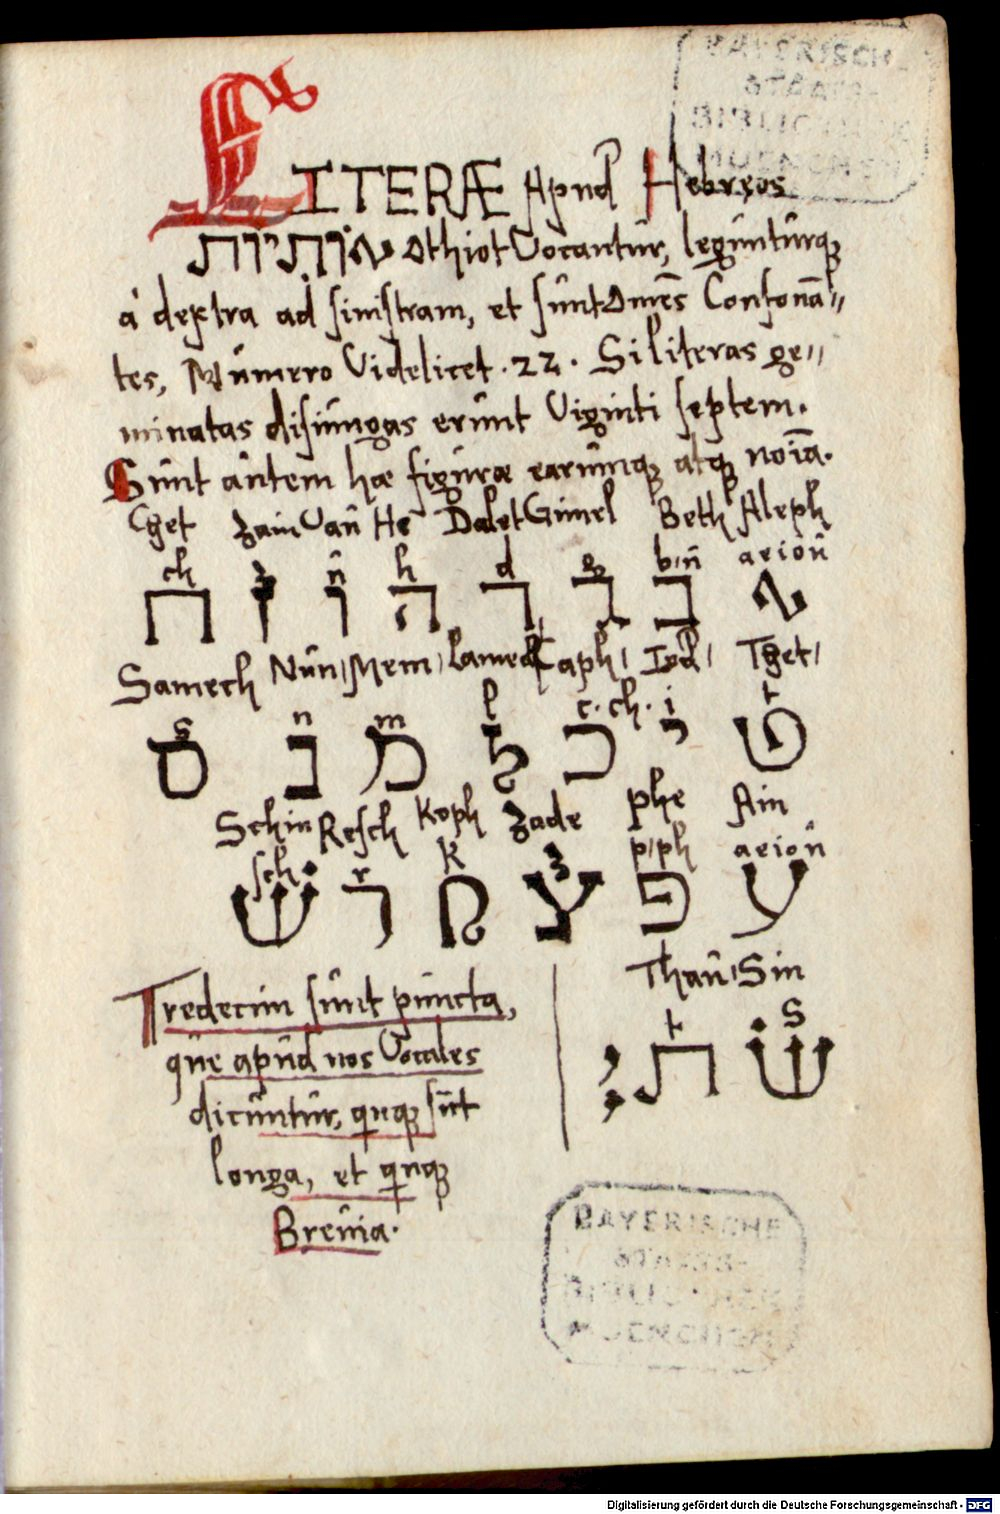 LITERÆ Apud Hebreos
אותיות Othiot Vocantur, legunturq̃
à dextra ad sinistram, et sunt Omēs Consonā„
tes, Numero Videlicet . 22 . Si literas ge„
minatas disiungas erunt Viginti septem.
Sunt autem hæ figuræ earumq̃ atq̃ noīa.
Chet Zain Vau He Dalet Gimel Beth Aleph
ch z u h d g b/u aeiou
ח ז ו ה ד ג ב א
Samech Nun/ Mem/ Lamed Caph/ Iod/ Thet/
s n m l c.ch. i t
ס נ מ ל כ י ט
Schin Resch Koph Zade phe Ain
sch r k z p/ph aeiou
שׁ ר ק צ פ ע
Thau/ Sin
t s
ת שׂ
Tredecim sunt puncta,
que apud nos Vocales
dicuntur, quuq̃ sūt
longa, et quuq̃
Brevia.
BAYERISCHE
STAATS-
BIBLIOTHEK
MUENCHEN
BAYERISCHE
STAATS-
BIBLIOTHEK
MUENCHEN
Digitalisierung gefördert durch die Deutsche Forschungsgemeinschaft - DFG